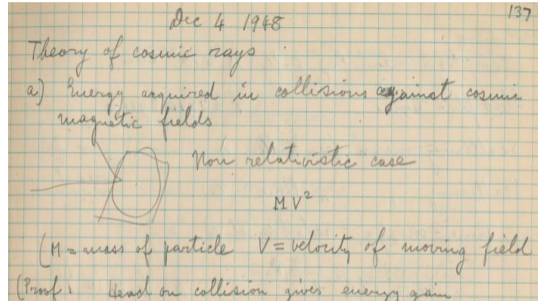 Dec 4 1948
137
Theory of cosmic rays
a) Energy acquired in collisions against cosmic
magnetic fields
Non relativistic case
MV²
(M = mass of particle V = velocity of moving field
(Proof: Head on collision gives energy gain